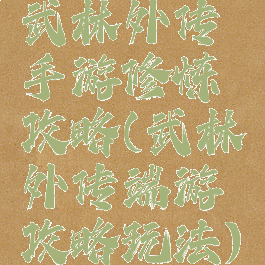 武林外传
手游修炼
攻略(武林
外传端游
攻略玩法)